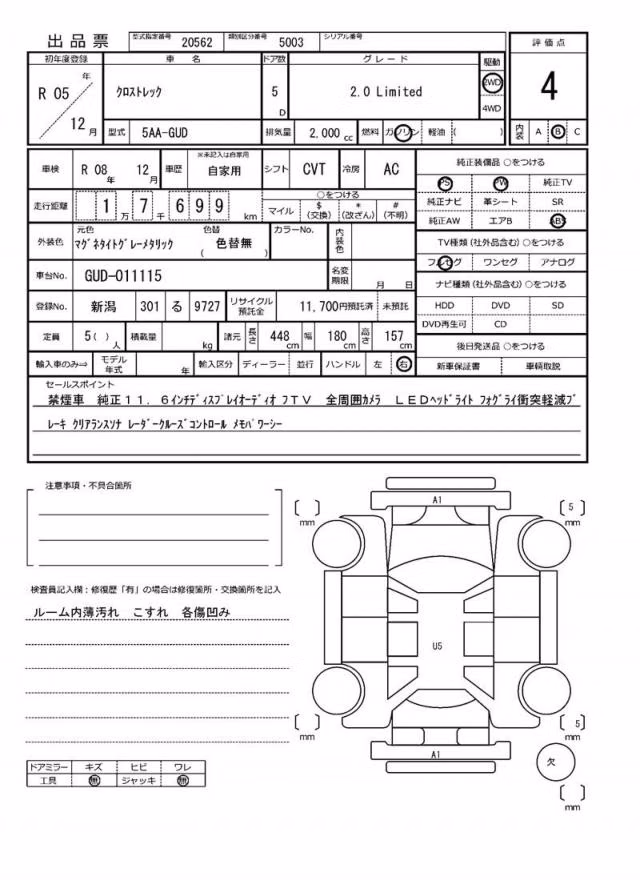 出品票 型式指定番号 20562 類別区分番号 5003 シリアル番号
評価点
4
内装 A B C
初年度登録 車名 ドア数 グレード 駆動
R 05 年 12 月 クロストレック 5 D 2.0 Limited 2WD 4WD
型式 5AA-GUD 排気量 2,000 cc 燃料 ガソリン 軽油 ( )
車検 R 08 年 12 月 車歴 ※未記入は自家用 自家用 シフト CVT 冷房 AC
走行距離 1 万 7 千 6 9 9 km ○をつける
マイル $ (交換) * (改ざん) # (不明)
外装色 元色 マグネタイトグレーメタリック 色替 ( 色替無 ) カラーNo. 内装色
車台No. GUD-011115 名変期限 月 日
登録No. 新潟 301 る 9727 リサイクル預託金 11,700円預託済 未預託
定員 5( ) 人 積載量 kg 諸元 長さ 448 cm 幅 180 cm 高さ 157 cm
輸入車のみ⇒ モデル年式 年 輸入区分 ディーラー 並行 ハンドル 左 右
純正装備品 ○をつける
PS PW 純正TV
純正ナビ 革シート SR
純正AW エアB ABS
TV種類(社外品含む) ○をつける
フルセグ ワンセグ アナログ
ナビ種類(社外品含む) ○をつける
HDD DVD SD
DVD再生可 CD
後日発送品 ○をつける
新車保証書 車輌取説
セールスポイント
禁煙車 純正11.6インチディスプレイオーディオ フTV 全周囲カメラ LEDヘッドライト フォグライ衝突軽減ブ
レーキ クリアランスソナ レーダークルーズコントロール メモパワーシー
注意事項・不具合箇所
検査員記入欄:修復歴「有」の場合は修復箇所・交換箇所を記入
ルーム内薄汚れ こすれ 各傷凹み
ドアミラー キズ ヒビ ワレ
工具 無 ジャッキ 無
A1
[ ] mm
[ 5 ] mm
U5
[ ] mm
[ 5 ] mm
A1
欠
[ ] mm